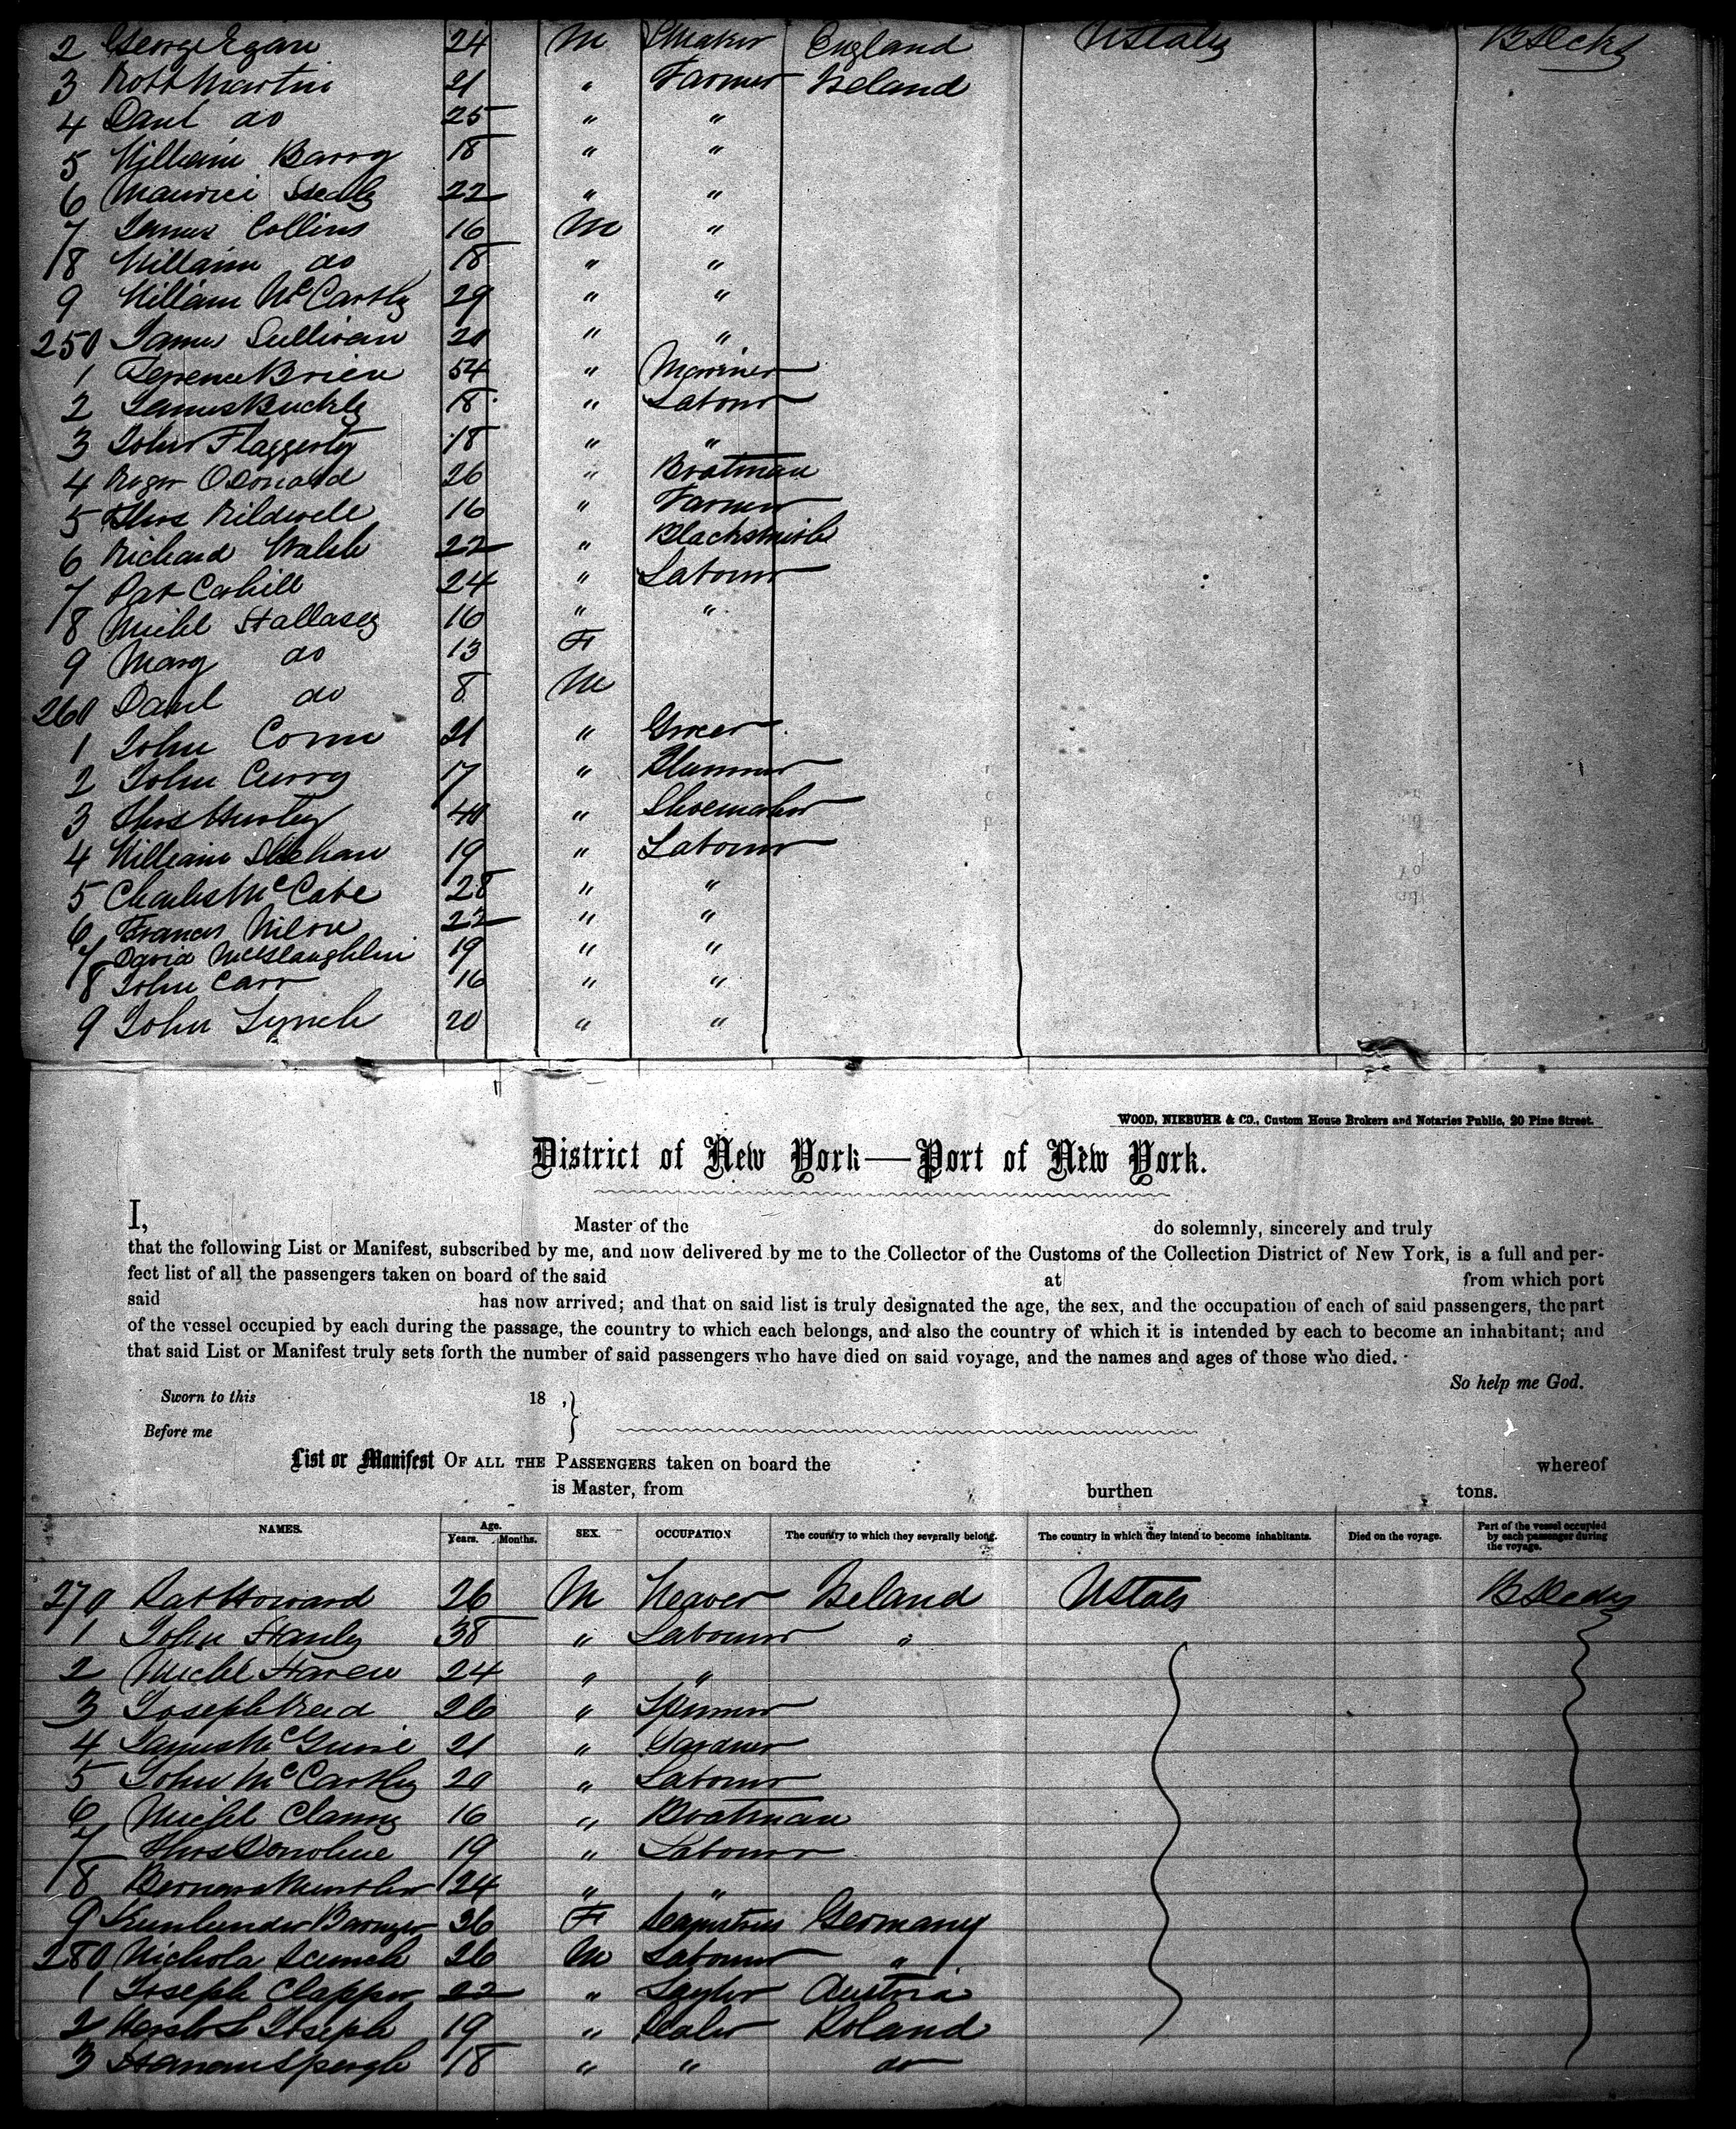 2 George Egan 24 M Smaker England UStates BDeck
3 Robt Martin 21 " Farmer Ireland
4 Danl do 25 " "
5 William Barry 18 " "
6 Maurice Healy 22 " "
7 James Collins 16 M "
8 William do 18 " "
9 William McCarthy 29 " "
250 James Sullivan 20 " "
1 Terrence Brien 54 " Mariner
2 James Buckly 18 " Labour
3 John Flaggerty 18 " "
4 Roger ODonald 26 " Boatman
5 Thos 16 " Farmer
6 Richard Walsh 22 " Blacksmith
7 Pat Cahill 24 " Labour
8 Michl Hallasey 16 " "
9 Mary do 13 F
260 Danl do 8 M
1 John 21 " Grocer
2 John Curry 17 " Plummer
3 Thos Hurley 40 " Shoemaker
4 William Shehan 19 " Labour
5 Charles McCabe 28 " "
6 Francis 22 " "
7 David McGlaughlin 19 " "
8 John Carr 16 " "
9 John Lynch 20 " "
WOOD, NIEBUHR & CO., Custom House Brokers and Notaries Public, 20 Pine Street.
District of New York—Port of New York.
I, Master of the do solemnly, sincerely and truly
that the following List or Manifest, subscribed by me, and now delivered by me to the Collector of the Customs of the Collection District of New York, is a full and per-
fect list of all the passengers taken on board of the said at from which port
said has now arrived; and that on said list is truly designated the age, the sex, and the occupation of each of said passengers, the part
of the vessel occupied by each during the passage, the country to which each belongs, and also the country of which it is intended by each to become an inhabitant; and
that said List or Manifest truly sets forth the number of said passengers who have died on said voyage, and the names and ages of those who died.
So help me God.
Sworn to this 18 ,
Before me
List or Manifest OF ALL THE PASSENGERS taken on board the whereof
is Master, from , burthen tons.
NAMES. Age. Years. Months. SEX. OCCUPATION The country to which they severally belong. The country in which they intend to become inhabitants. Died on the voyage. Part of the vessel occupied by each passenger during the voyage.
270 Pat Howard 26 M Weaver Ireland UStates BDeck
1 John Hanly 38 " Labourer "
2 Michl Haren 24 " "
3 Joseph Reid 26 " Spinner
4 James McGuire 21 " Gardner
5 John McCarthy 20 " Labour
6 Michl Clancy 16 " Boatman
7 Thos Donohue 19 " Labour
8 24 " "
9 36 F Germany
280 Nichola 26 M Labour "
1 Joseph Clapper 22 " Taylor Austria
2 Joseph 19 " Poland
3 18 " " do